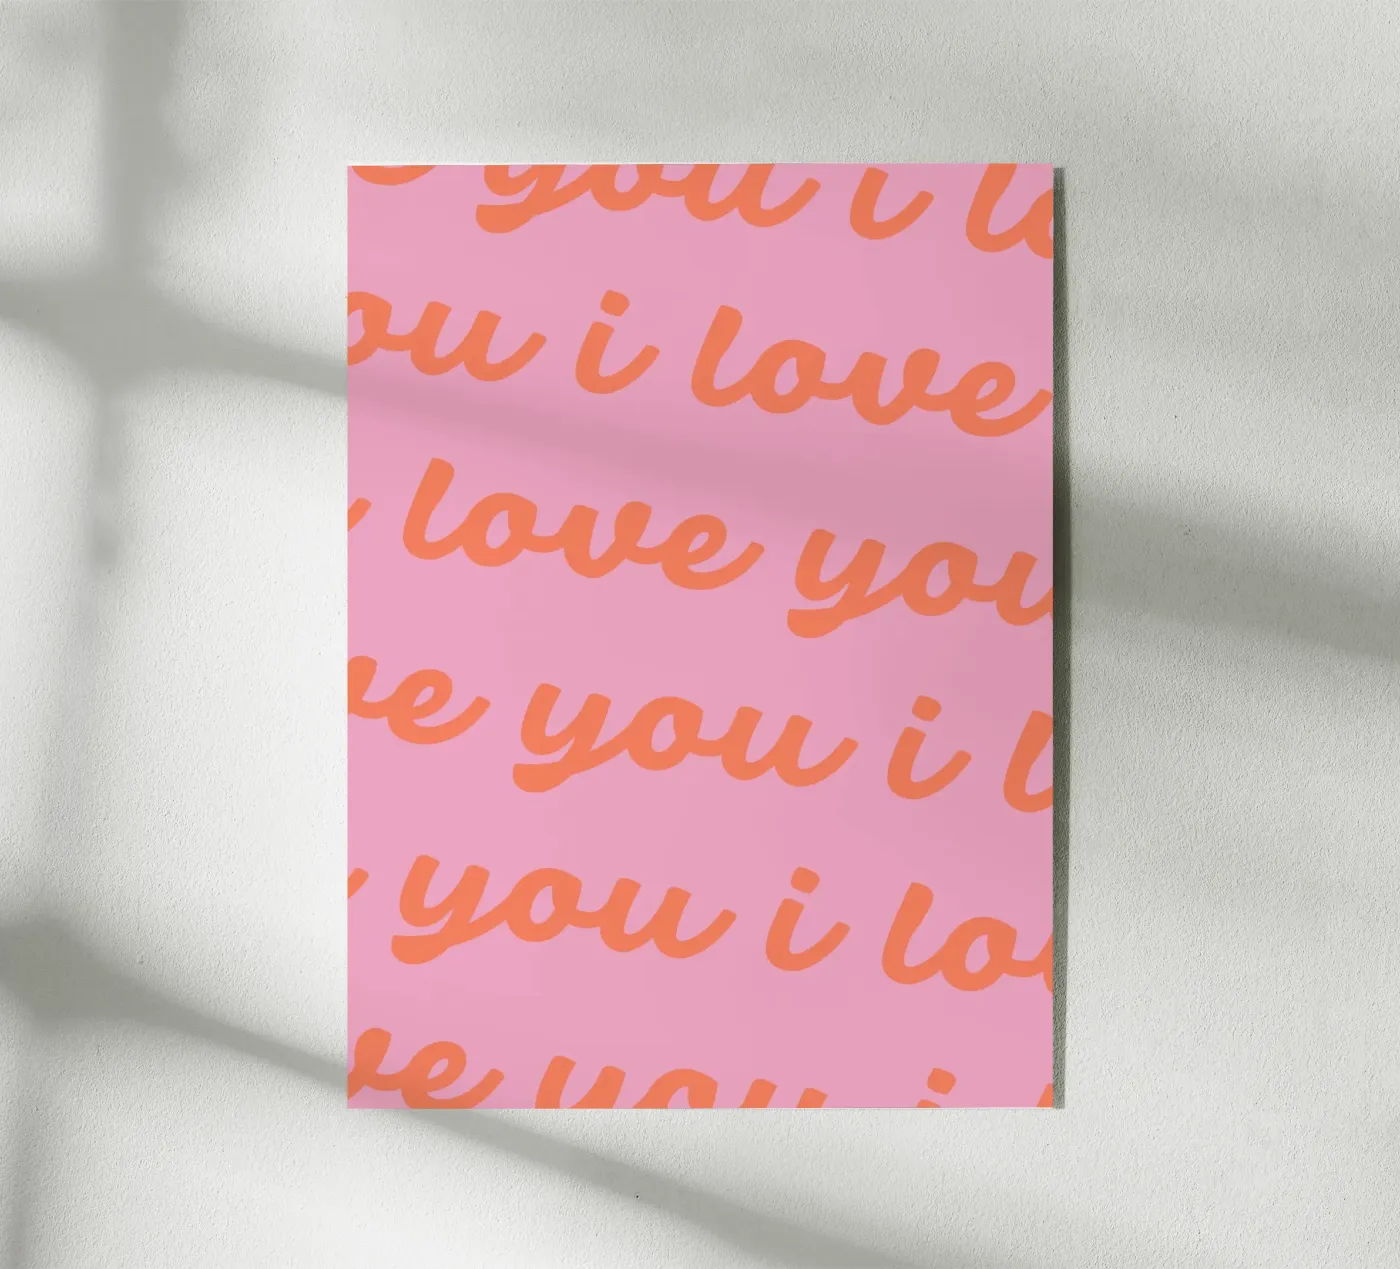 e you i lo
ou i love
love you
ve you i l
you i lov
ve you i